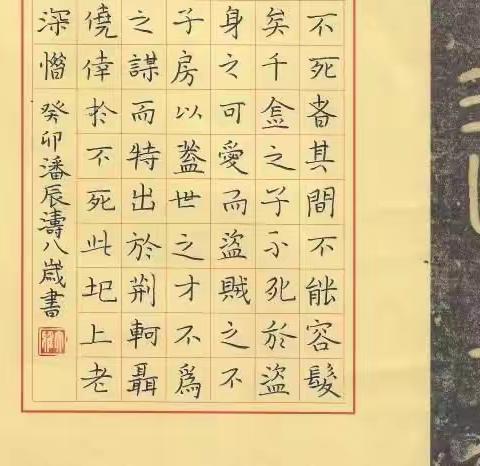 不死者其間不能容髮
矣千金之子不死於盜
身之可愛而盜賊之不
子房以蓋世之才不爲
之謀而特出於荊軻聶
僥倖於不死此圯上老
深惜
癸卯潘辰濤八歲書